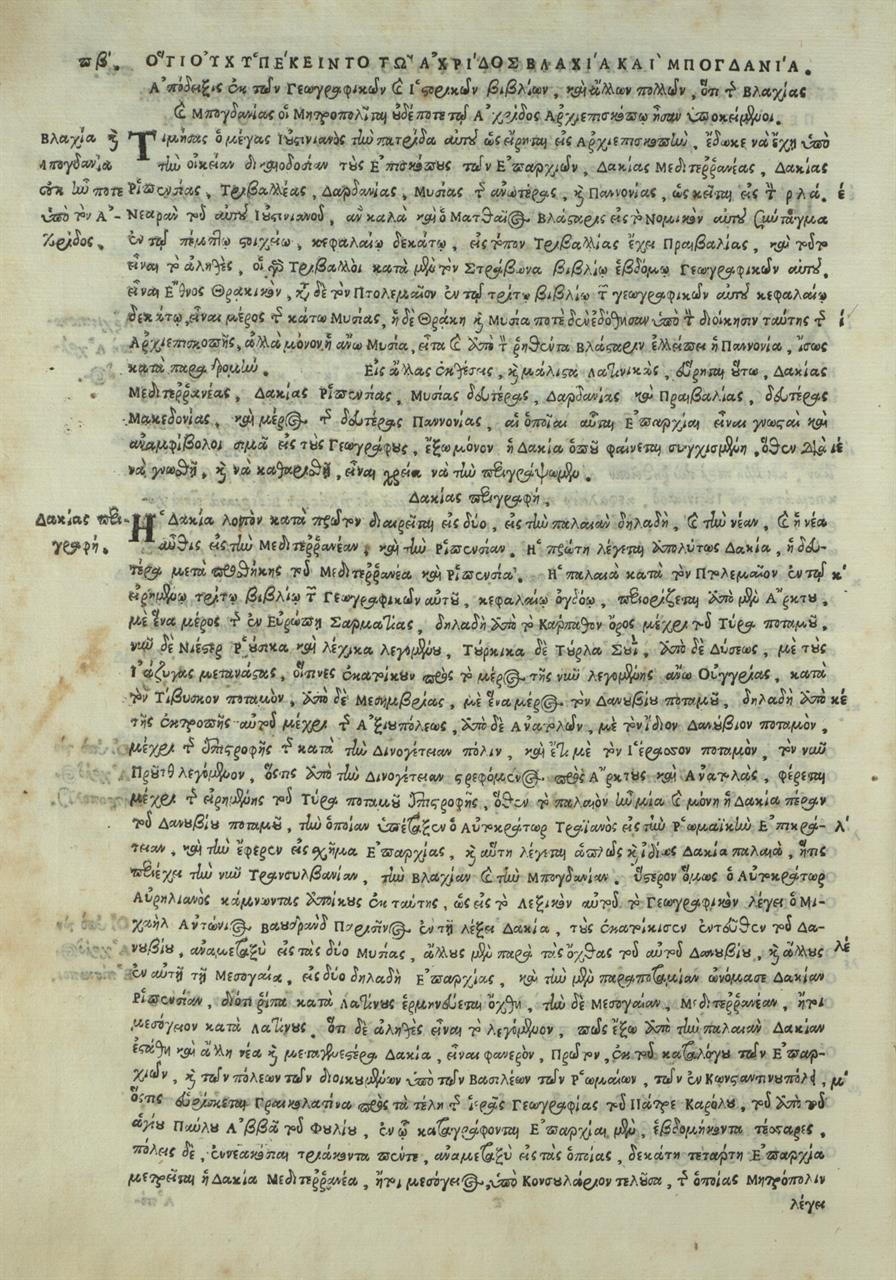 πβ´. ΟΤΙ ΟΥΧ ΥΠΕΚΕΙΝΤΟ ΤΩ ΑΧΡΙΔΟΣ ΒΛΑΧΙΑ ΚΑΙ ΜΠΟΓΔΑΝΙΑ.
Ἀπόδειξις ἐκ τῶν Γεωγραφικῶν καὶ Ἱστορικῶν βιβλίων, καὶ ἄλλων πολλῶν, ὅτι τῆς Βλαχίας
καὶ Μπογδανίας οἱ Μητροπολῖται οὐδέποτε τῷ Ἀχρίδος Ἀρχιεπισκόπῳ ἦσαν ὑποκείμενοι.
Βλαχία καὶ
Μπογδανία
οὐκ ἦν ποτε
ὑπὸ τὸν Ἀ-
χρίδος.
Τιμήσας ὁ μέγας Ἰουστινιανὸς τὴν πατρίδα αὐτοῦ ὡς εἴρηται εἰς Ἀρχιεπισκοπὴν, ἔδωκε νὰ ἔχῃ ὑπὸ
τὴν οἰκείαν δικαιοδοσίαν τοὺς Ἐπισκόπους τῶν Ἐπαρχιῶν, Δακίας Μεδιτεῤῥανέας, Δακίας
Ῥιπενσίας, Τριβαλλέας, Δαρδανίας, Μυσίας τῆς ἀνωτέρας, καὶ Παννονίας, ὡς κεῖται εἰς τὴν ρλά. έ
Νεαρὰν τοῦ αὐτοῦ Ἰουστινιανοῦ, ἂν καλὰ καὶ ὁ Ματθαῖος Βλάσταρις εἰς τὸ Νομικὸν αὐτοῦ Σύνταγμα
ἐν τῷ πέμπτῳ στοιχείῳ, κεφαλαίῳ δεκάτῳ, εἰς τόπον Τριβαλλίας ἔχει Πραιβαλίας, καὶ τοῦτο
εἶναι τὸ ἀληθὲς, οἱ γὰρ Τριβαλλοὶ κατὰ μὲν τὸν Στράβωνα βιβλίῳ ἑβδόμῳ Γεωγραφικῶν αὐτοῦ,
εἶναι Ἔθνος Θρακικὸν, κατὰ δὲ τὸν Πτολεμαῖον ἐν τῷ τρίτῳ βιβλίῳ τῶν γεωγραφικῶν αὐτοῦ κεφαλαίῳ
δεκάτῳ, εἶναι μέρος τῆς κάτω Μυσίας, ἡ δὲ Θράκη καὶ Μυσία ποτὲ δὲν ἐδόθησαν ὑπὸ τὴν διοίκησιν ταύτης τῆς ί
Ἀρχιεπισκοπῆς, ἀλλὰ μόνον ἡ ἄνω Μυσία, εἶτα καὶ ἀπὸ τὴν ῥηθέντα Βλάσταριν ἐλλείπει ἡ Παννονία, ἴσως
κατὰ παραδρομήν. Εἰς ἄλλας ἐκθέσεις, καὶ μάλιστα Λατινικὰς, εὕρηται οὕτω, Δακίας
Μεδιτεῤῥανέας, Δακίας Ῥιπενσίας, Μυσίας δευτέρας, Δαρδανίας καὶ Πραιβαλίας, δευτέρας
Μακεδονίας, καὶ μέρος τῆς δευτέρας Παννονίας, αἱ ὁποῖαι αὗται Ἐπαρχίαι εἶναι γνωσταὶ καὶ
ἀναμφίβολοι σιμὰ εἰς τοὺς Γεωγράφους, ἔξω μόνον ἡ Δακία ὁποῦ φαίνεται συγχισμένη, ὅθεν διὰ ιέ
νὰ γνωσθῇ, καὶ νὰ καθαρισθῇ, εἶναι χρεία νὰ τὴν περιγράψωμεν.
Δακίας περιγραφή.
Δακίας περι-
γραφή.
Ἡ Δακία λοιπὸν κατὰ πρῶτον διαιρεῖται εἰς δύο, εἰς τὴν παλαιὰν δηλαδὴ, καὶ τὴν νέαν, καὶ ἡ νέα
αὖθις εἰς τὴν Μεδιτεῤῥανέαν, καὶ τὴν Ῥιπενσίαν. Ἡ πρώτη λέγεται ἀπολύτως Δακία, ἡ δευ-
τέρα μετὰ προσθήκης τοῦ Μεδιτεῤῥανέα καὶ Ῥιπενσία. Ἡ παλαιὰ κατὰ τὸν Πτολεμαῖον ἐν τῷ κ´
εἰρημένῳ τρίτῳ βιβλίῳ τῶν Γεωγραφικῶν αὐτοῦ, κεφαλαίῳ ὀγδόῳ, περιορίζεται ἀπὸ μὲν Ἄρκτου,
μὲ ἕνα μέρος τῆς ἐν Εὐρώπῃ Σαρματίας, δηλαδὴ ἀπὸ τὸ Καρπάθον ὄρος μέχρι τοῦ Τύρα ποταμοῦ,
νῦν δὲ Νίεστερ Ῥούσικα καὶ λέχικα λεγομένου, Τούρκικα δὲ Τούρλα Σουΐ, ἀπὸ δὲ Δύσεως, μὲ τοὺς
Ἰάζυγας μετανάστας, οἵτινες ἐκατοίκουν πρὸς τὸ μέρος τῆς νῦν λεγομένης ἄνω Οὐγγρίας, κατὰ
τὸν Τίβυσκον ποταμὸν, ἀπὸ δὲ Μεσημβρίας, μὲ ἕνα μέρος τὸν Δανουβίου ποταμοῦ, δηλαδὴ ἀπὸ κέ
τῆς ἐκτροπῆς αὐτοῦ μέχρι τῆς Ἀξιουπόλεως, ἀπὸ δὲ Ἀνατολῶν, μὲ τὸν ἴδιον Δανούβιον ποταμὸν,
μέχρι τῆς ἐπιστροφῆς τῆς κατὰ τὴν Δινογέτειαν πόλιν, καὶ ἔτι μὲ τὸν Ἱέρασον ποταμὸν, τὸν νῦν
Προῦθ λεγόμενον, ὅστις ἀπὸ τὴν Δινογέτειαν στρεφόμενος πρὸς Ἄρκτους καὶ Ἀνατολὰς, φέρεται
μέχρι τῆς εἰρημένης τοῦ Τύρα ποταμοῦ ἐπιστροφῆς, ὅθεν τὸ παλαιὸν ἦν μία καὶ μόνη ἡ Δακία πέραν
τοῦ Δανουβίου ποταμοῦ, τὴν ὁποίαν ὑπέταξεν ὁ Αὐτοκράτωρ Τραϊανὸς εἰς τὴν Ῥωμαϊκὴν Ἐπικρά- λ´
τειαν, καὶ τὴν ἔφερεν εἰς σχῆμα Ἐπαρχίας, καὶ αὕτη λέγεται ἁπλῶς καὶ ἰδίως Δακία παλαιὰ, ἥτις
περιέχει τὴν νῦν Τρανσυλβανίαν, τὴν Βλαχίαν καὶ τὴν Μπογδανίαν. ὕστερον ὅμως ὁ Αὐτοκράτωρ
Αὐρηλιανὸς κάμνωντας ἀποίκους ἐκ ταύτης, ὡς εἰς τὸ Λεξικὸν αὐτοῦ τὸ Γεωγραφικὸν λέγει ὁ Μι-
χαὴλ Ἀντώνιος Βαυδρὰνδ Παρισῖνος ἐν τῇ λέξει Δακία, τοὺς ἐκατοίκισεν ἐντεῦθεν τοῦ Δα-
νουβίου, ἀναμεταξὺ εἰς τὰς δύο Μυσίας, ἄλλους μὲν παρὰ τὰς ὄχθας τοῦ αὐτοῦ Δανουβίου, καὶ ἄλλους λέ
ἐν αὐτῇ τῇ Μεσογαίᾳ, εἰς δύο δηλαδὴ Ἐπαρχίας, καὶ τὴν μὲν παραποταμίαν ὠνόμασε Δακίαν
Ῥιπενσίαν, διότι ῥίπα κατὰ Λατίνους ἑρμηνεύεται ὄχθη, τὴν δὲ Μεσογαίαν, Μεδιτεῤῥανέαν, ἤτοι
μεσόγειον κατὰ Λατίνους. ὅτι δὲ ἀληθὲς εἶναι τὸ λεγόμενον, πῶς ἔξω ἀπὸ τὴν παλαιὰν Δακίαν
ἐστάθη καὶ ἄλλη νέα καὶ μεταγενεστέρα Δακία, εἶναι φανερὸν, Πρῶτον, ἐκ τοῦ καταλόγου τῶν Ἐπαρ-
χιῶν, καὶ τῶν πόλεων τῶν διοικουμένων ὑπὸ τῶν Βασιλέων τῶν Ῥωμαίων, τῶν ἐν Κωνσταντινουπόλει, μ´
ὅστις εὑρίσκεται Γραικολατῖνα πρὸς τὰ τέλη τῆς ἱερᾶς Γεωγραφίας τοῦ Πάτρε Καρόλου, τοῦ ἀπὸ τοῦ
ἁγίου Παύλου Ἀββᾶ τοῦ Φυλίου, ἐν ᾧ καταγράφονται Ἐπαρχίαι μὲν, ἑβδομήκοντα τέσσαρες,
πόλεις δὲ, ἐννεακόσιαι τριάκοντα πέντε, ἀναμεταξὺ εἰς τὰς ὁποίας, δεκάτη τετάρτη Ἐπαρχία
μετρεῖται ἡ Δακία Μεδιτεῤῥανέα, ἤτοι μεσόγειος, ὑπὸ Κονσουλάριον τελοῦσα, τῆς ὁποίας Μητρόπολιν
λέγει